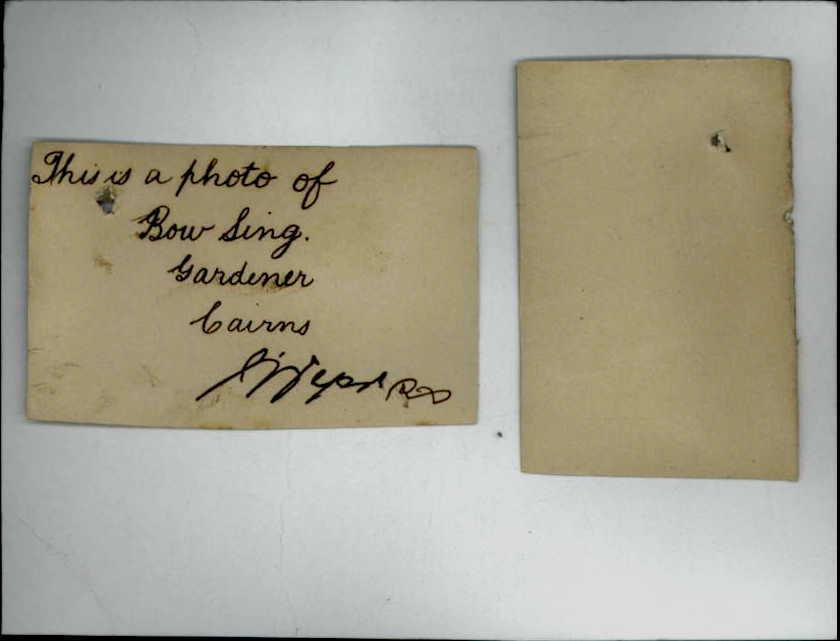 This is a photo of
Bow Sing.
Gardener
Cairns